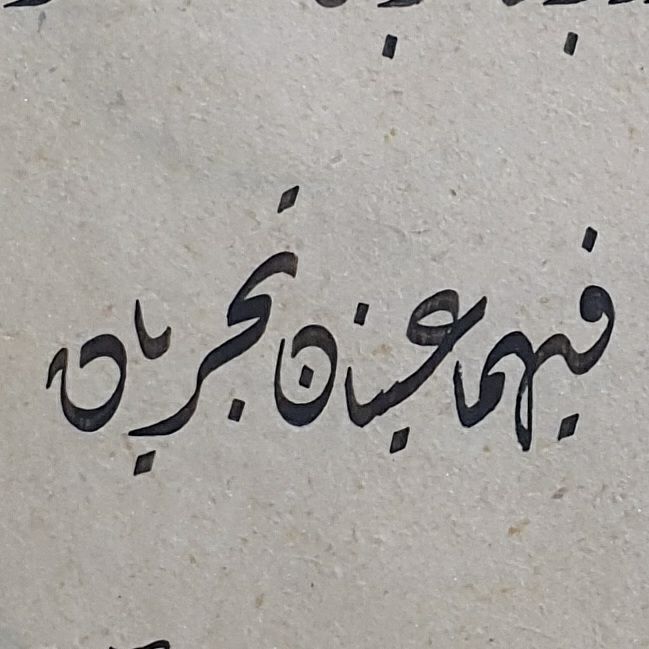 فيهما عينان تجريان